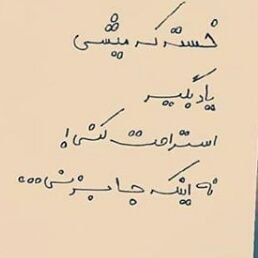 خسته که میشی
یاد بگیر
استراحت کنی!
نه اینکه جا بزنی...